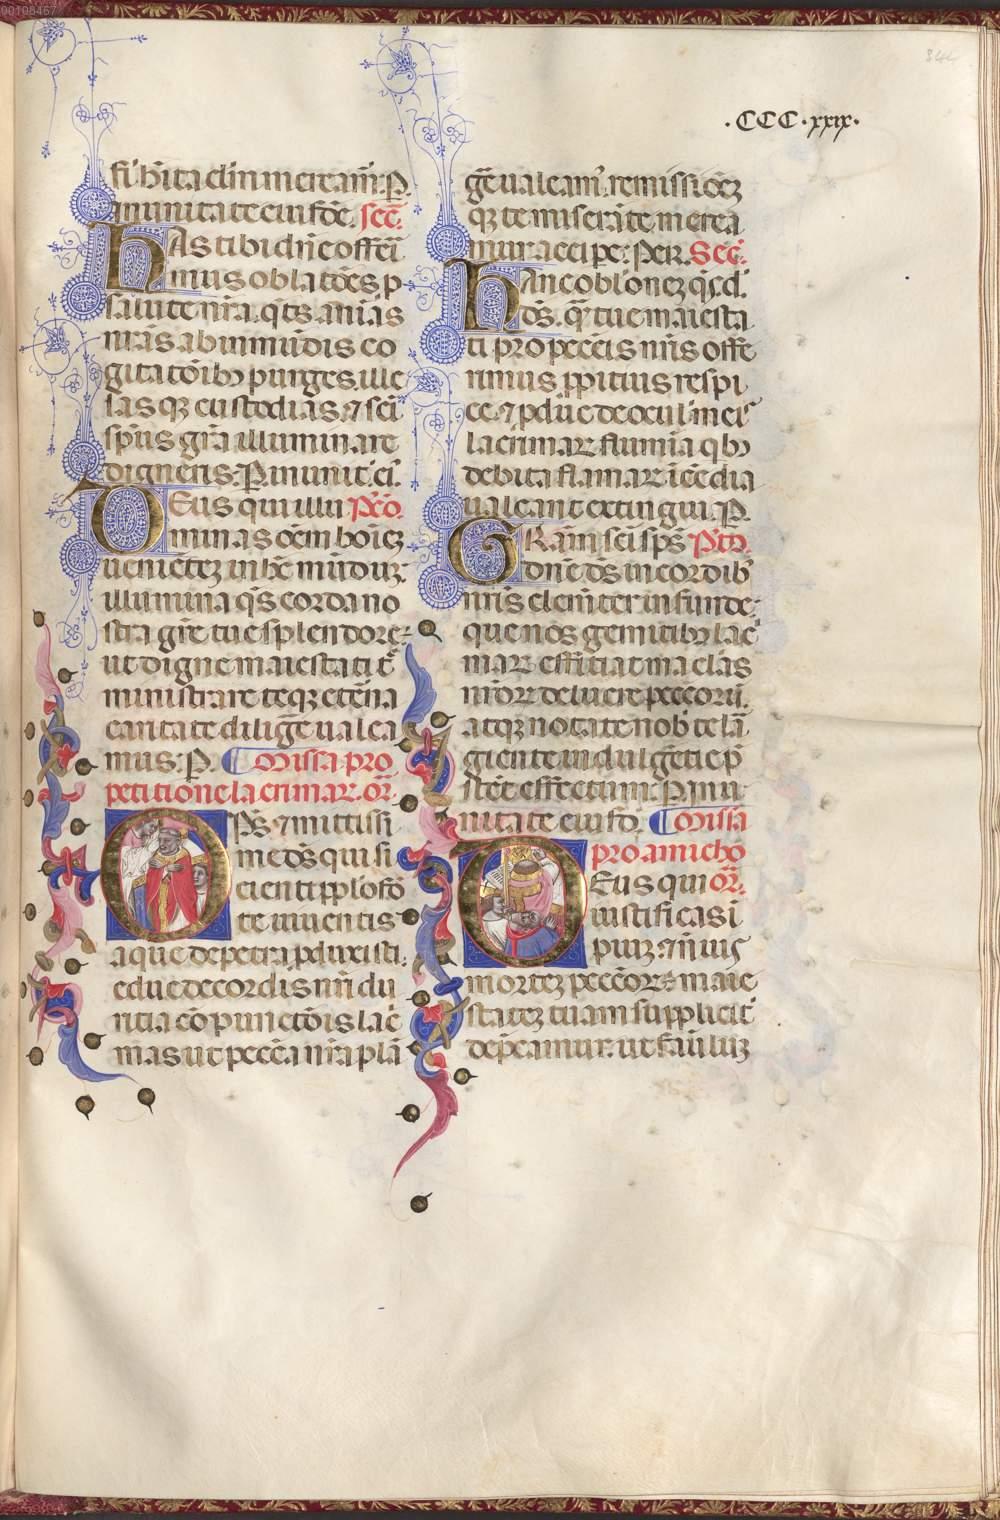 00108467
344
·CCC·xxix·
si hītacl'm meream̄: P̄
munitate eiusdē. sec̄.
HAs tibi dn̄e offeri
mus oblatōes p
salute nr̄a. q̄s. anīas
nr̄as ab inmūdis co
gitatōibꝫ purges. ille
sasqꝫ custodias. ⁊ sc̄i
sp̄us gr̄a illuminare
digneris: P. in unit̄. ei'.
DEus qui illu P̄co.
minas oēm hoīeꝫ
uenieteꝫ in hc̄ mūduꝫ.
illumina q̄s corda no
stra gr̄e tue splendore:
ut digne maiestati t̄
ministrare teqꝫ et̄na
caritate diligē ualea
mus: P. Missa pro
petitione lacrimaꝝ. or̄.
OPs ⁊ mitissi
me ds̄ qui si
cienti pp̄lo fo
te uiuentis
aque de petra pduxisti.
educ de cordis nr̄i du
ritia cō punctōis lac̄
mas ut pecc̄a nr̄a plā
gē ualeam'. remissiōeꝫ
qꝫ te miserāte merea
mur accipe: Per. Sec̄.
HAnc obl'oneꝫ q̄s. d.
ds̄. q̄ tue maiesta
ti pro pecc̄is nr̄is offe
rimus. ppitius respi
ce. ⁊ pduc de oculis nr̄is
lacrimaꝝ flumīa qbꝫ
debita flamaꝝ īcēdia
ualeant extingui. P.
GRām sc̄i sp̄s P̄co.
dn̄e ds̄ in cordibꝫ
nr̄is clem̄ter infunde:
que nos gemitibꝫ lac̄
maꝝ efficiat maclas
nr̄oꝝ deluere pecc̄oru.
atqꝫ notate nob' te lā
giente indulgētie p̄
stet effectum: P. in u
nitate eiusd. Missa
pro amicho
DEus qui or̄.
iustificas ī
piuꝫ. ⁊ n̄ uis
morteꝫ pecc̄oꝝ: maie
stateꝫ tuam suppliciť
dep̄camur. ut fam̄luꝫ